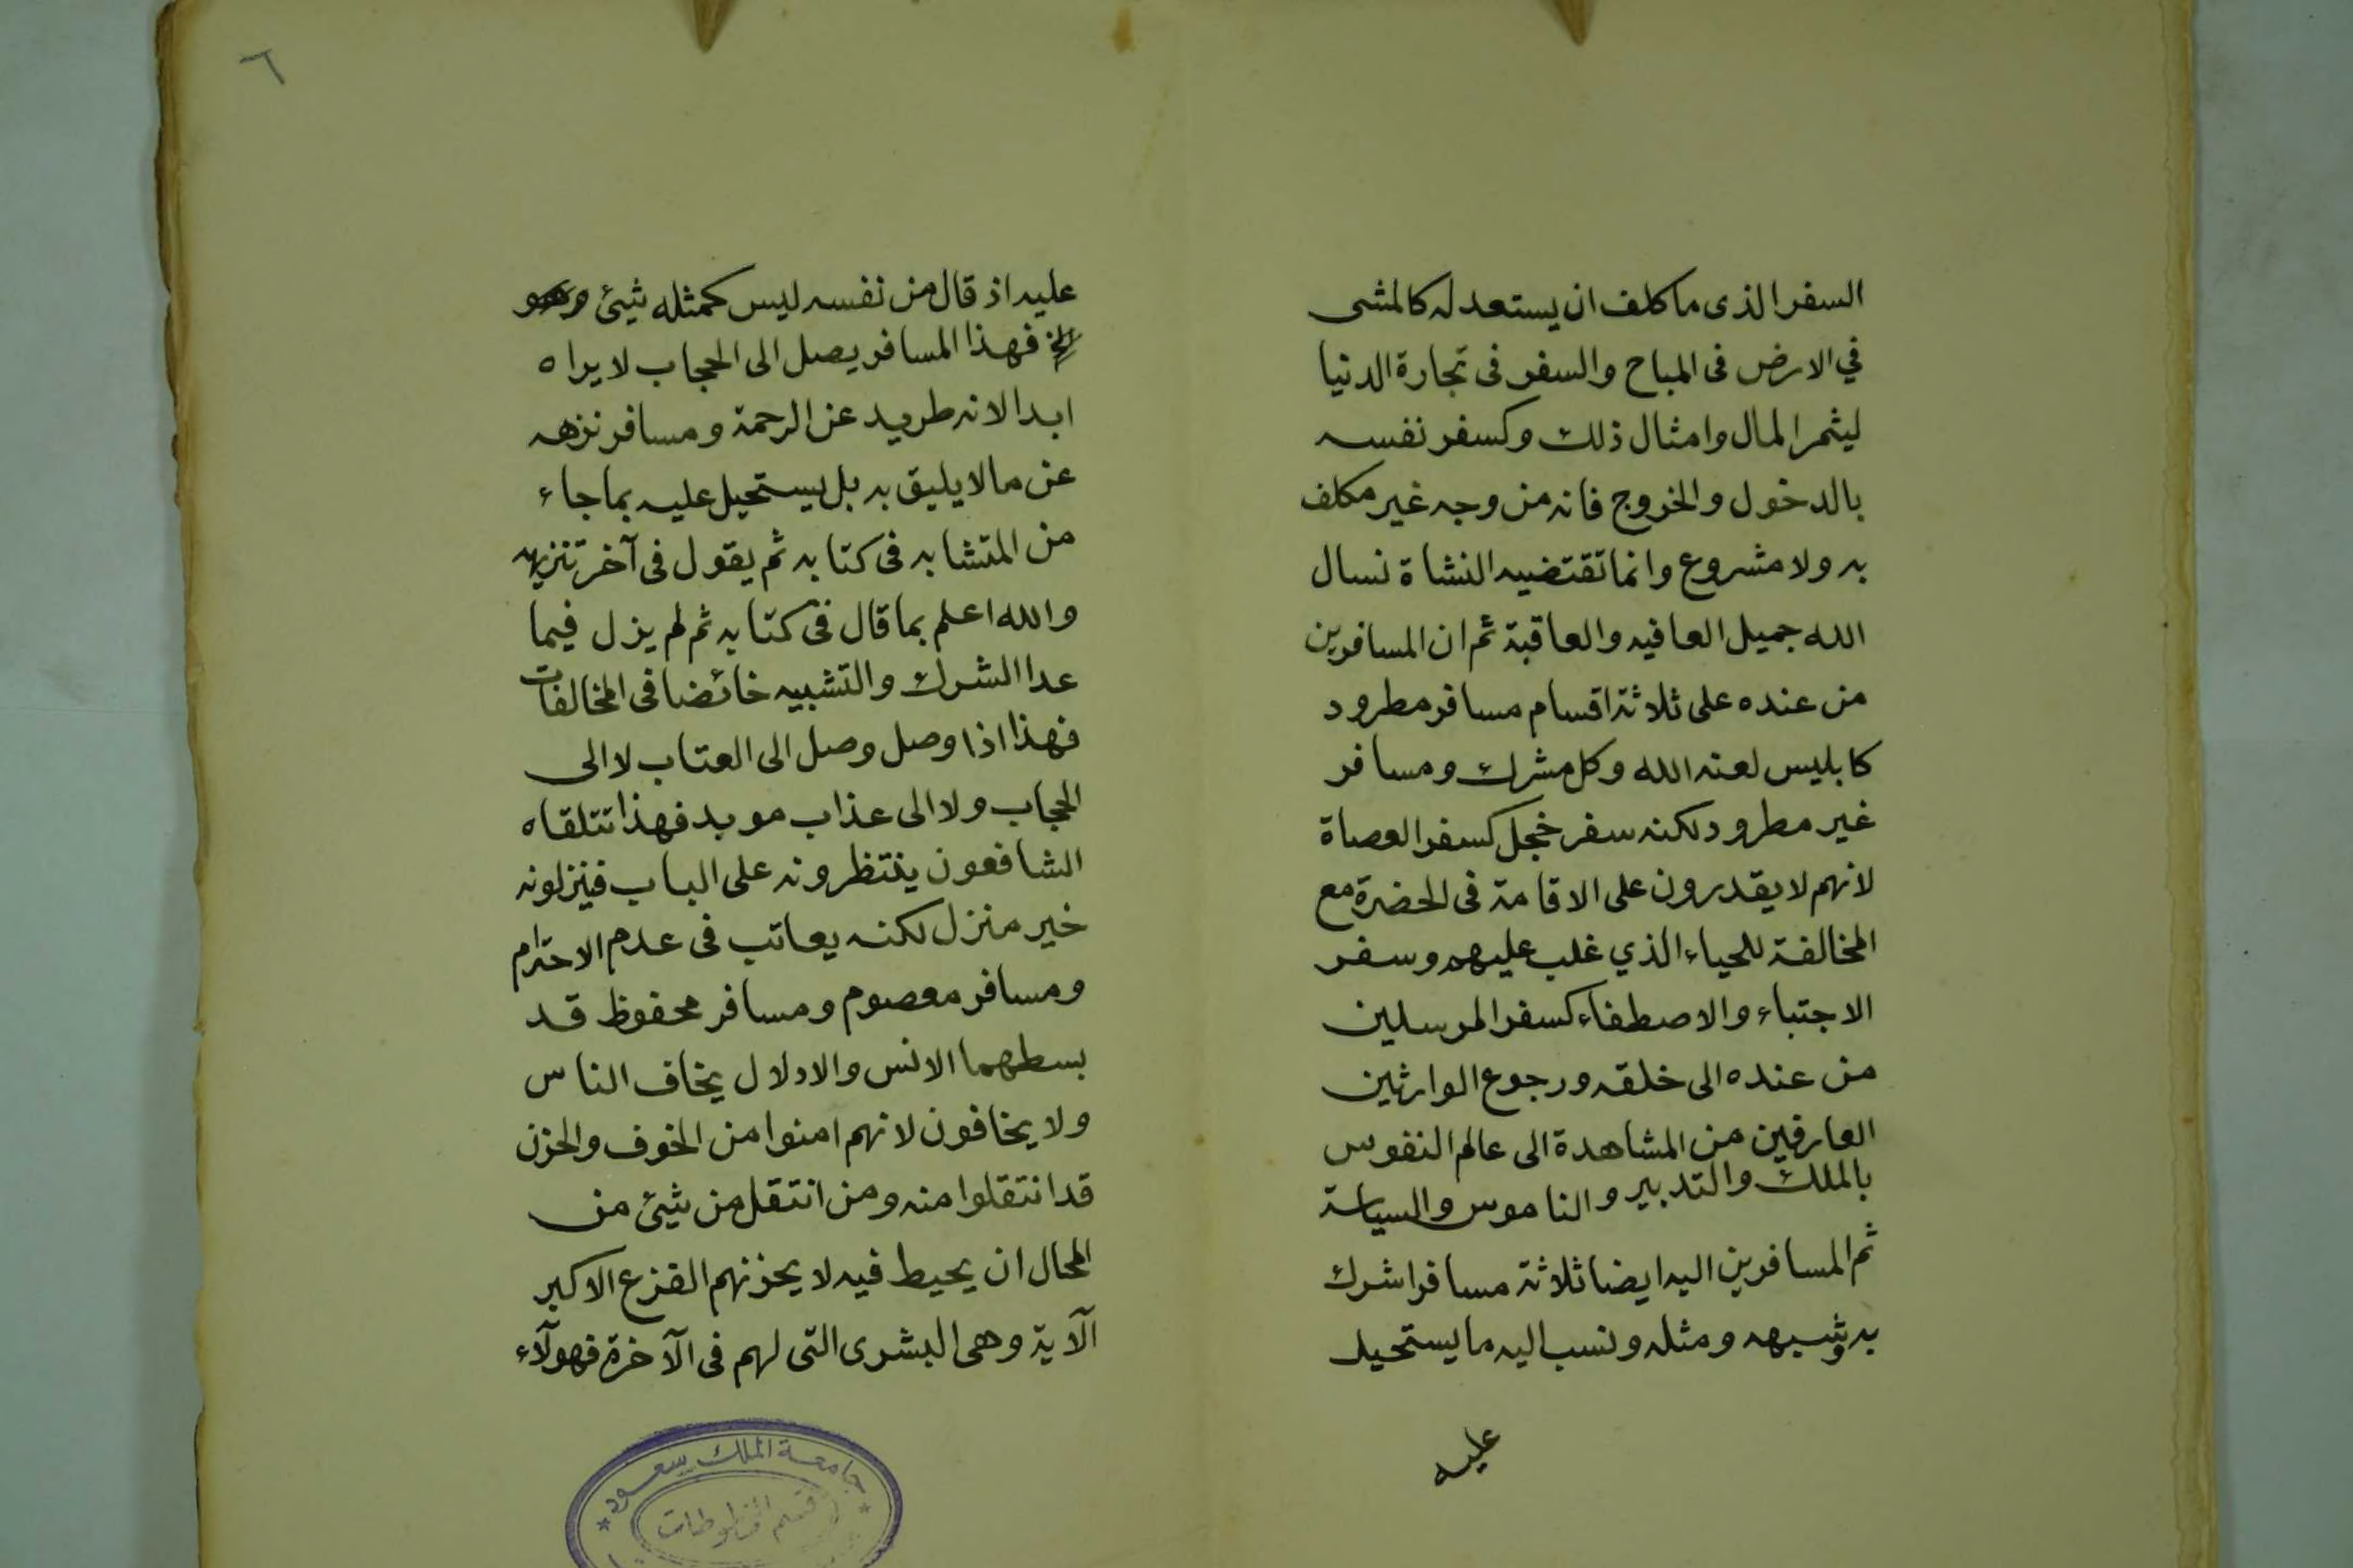 السفر الذى ما كلف ان يستعد له كالمشى
في الارض فى المباح والسفر فى تجارة الدنيا
ليثمر المال وامثال ذلك وكسفر نفسه
بالدخول والخروج فانه من وجه غير مكلف
به ولا مشروع وانما تقتضيه النشاة نسال
الله جميل العافيه والعاقبة ثم ان المسافرين
من عنده على ثلاثة اقسام مسافر مطرود
كابليس لعنه الله وكل مشرك ومسافر
غير مطرود لكنه سفر خجل كسفر العصاة
لانهم لا يقدرون على الاقامة فى الحضرة مع
المخالفة للحياء الذي غلب عليهم وسفر
الاجتباء والاصطفاء كسفر المرسلين
من عنده الى خلقه ورجوع الوارثين
العارفين من المشاهدة الى عالم النفوس
بالملك والتدبير والناموس والسياسة
ثم المسافرين اليه ايضا ثلاثة مسافر اشرك
به وشبهه ومثله ونسب اليه ما يستحيل
عليه
٦
عليه اذ قال من نفسه ليس كمثله شيئ وهو
الخ فهذا المسافر يصل الى الحجاب لا يراه
ابدا لانه طريد عن الرحمة ومسافر نزهه
عن ما لا يليق به بل يستحيل عليه بما جاء
من المتشابه فى كتابه ثم يقول فى آخر تنزيهه
والله اعلم بما قال فى كتابه ثم لم يزل فيما
عدا الشرك والتشبيه خائضا فى المخالفات
فهذا اذا وصل وصل الى العتاب لا الى
الحجاب ولا الى عذاب موبد فهذا تتلقاه
الشافعون ينتظرونه على الباب فينزلونه
خير منزل لكنه يعاتب فى عدم الاحترام
ومسافر معصوم ومسافر محفوظ قد
بسطهما الانس والادلال يخاف الناس
ولا يخافون لانهم امنوا من الخوف والحزن
قد انتقلوا منه ومن انتقل من شيئ من
المحال ان يحيط فيه لا يحزنهم الفزع الاكبر
الآية وهى البشرى التى لهم فى الآخرة فهولآء
جامعة الملك سعود
قسم المخطوطات